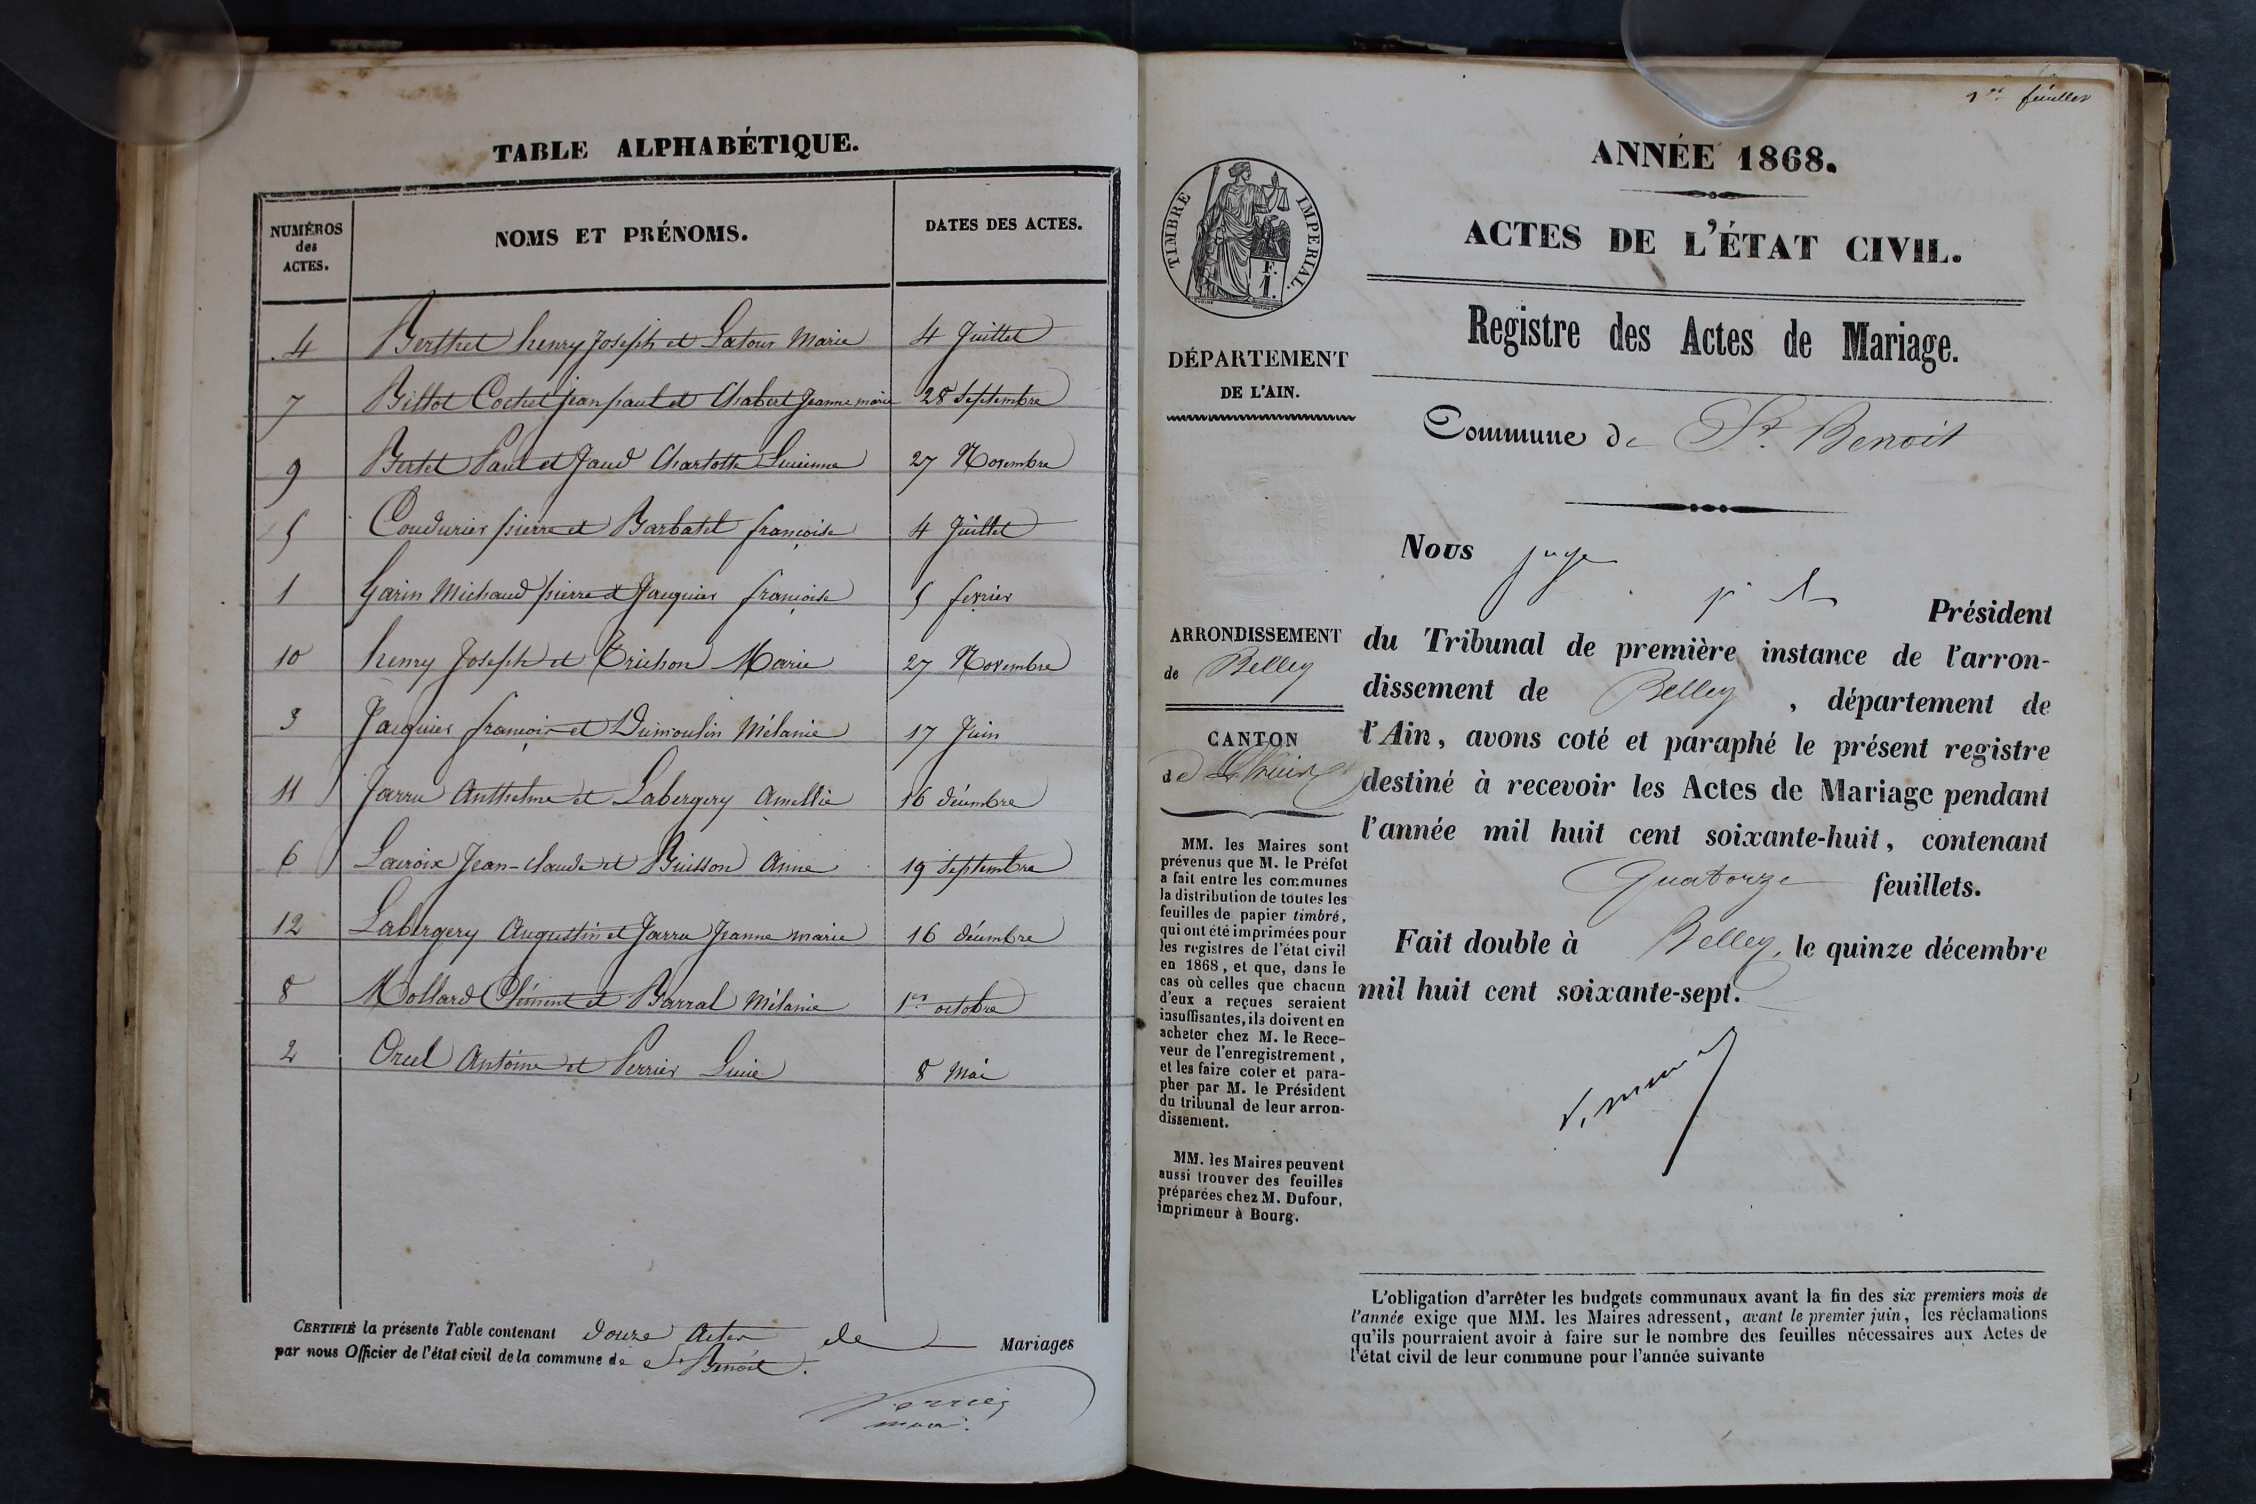 TABLE ALPHABÉTIQUE.
NUMÉROS des ACTES. NOMS ET PRÉNOMS. DATES DES ACTES.
4 Berthet henry Joseph et Latour Marie 4 Juillet
7 Billot Cochet jean paul et Chabert Jeanne marie 28 Septembre
9 Bertet Paul et Jaud Charlotte Lucienne 27 Novembre
5 Coudurier pierre et Barbatel françoise 4 Juillet
1 Garin Michaud pierre et Jacquier françoise 5 fevrier
10 henry Joseph et Trichon Marie 27 Novembre
3 Jacquier françois et Dumoulin Mélanie 17 Juin
11 Jarru Anthelme et Labergery Amellie 16 décembre
6 Lacroix Jean-claude et Buisson Anne 19 septembre
12 Labergery Augustin et Jarru Jeanne marie 16 décembre
8 Mollard Clément et Barral Mélanie 1er octobre
2 Orcel Antoine et Perrier Lucie 8 Mai
CERTIFIÉ la présente Table contenant douze Actes de Mariages
par nous Officier de l'état civil de la commune de St Benoit.
Perrier
maire.
1er feuillet
ANNÉE 1868.
ACTES DE L'ÉTAT CIVIL.
Registre des Actes de Mariage.
Commune de St. Benoit
TIMBRE IMPERIAL.
F.
1.
DÉPARTEMENT
DE L'AIN.
ARRONDISSEMENT
de Belley
CANTON
de
MM. les Maires sont
prévenus que M. le Préfet
a fait entre les communes
la distribution de toutes les
feuilles de papier timbré,
qui ont été imprimées pour
les registres de l'état civil
en 1868, et que, dans le
cas où celles que chacun
d'eux a reçues seraient
insuffisantes, ils doivent en
acheter chez M. le Rece-
veur de l'enregistrement,
et les faire coter et para-
pher par M. le Président
du tribunal de leur arron-
dissement.
MM. les Maires peuvent
aussi trouver des feuilles
préparées chez M. Dufour,
imprimeur à Bourg.
Nous juge Président
du Tribunal de première instance de l'arron-
dissement de Belley, département de
l'Ain, avons coté et paraphé le présent registre
destiné à recevoir les Actes de Mariage pendant
l'année mil huit cent soixante-huit, contenant
Quatorze feuillets.
Fait double à Belley, le quinze décembre
mil huit cent soixante-sept.
L'obligation d'arrêter les budgets communaux avant la fin des six premiers mois de
l'année exige que MM. les Maires adressent, avant le premier juin, les réclamations
qu'ils pourraient avoir à faire sur le nombre des feuilles nécessaires aux Actes de
l'état civil de leur commune pour l'année suivante